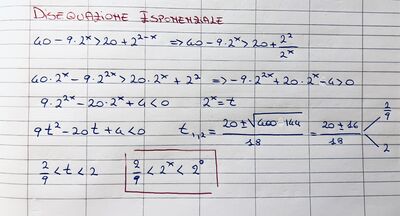 DISEQUAZIONE ESPONENZIALE
40-9·2ˣ>20+2²⁻ˣ ⇒40-9·2ˣ>20+2²/2ˣ
40·2ˣ-9·2²ˣ>20·2ˣ+2² ⇒-9·2²ˣ+20·2ˣ-4>0
9·2²ˣ-20·2ˣ+4<0 2ˣ=t
9t²-20t+4<0 t₁,₂=(20±√(400-144))/18=(20±16)/18 2/9 2
2/9<t<2 2/9<2ˣ<2⁰